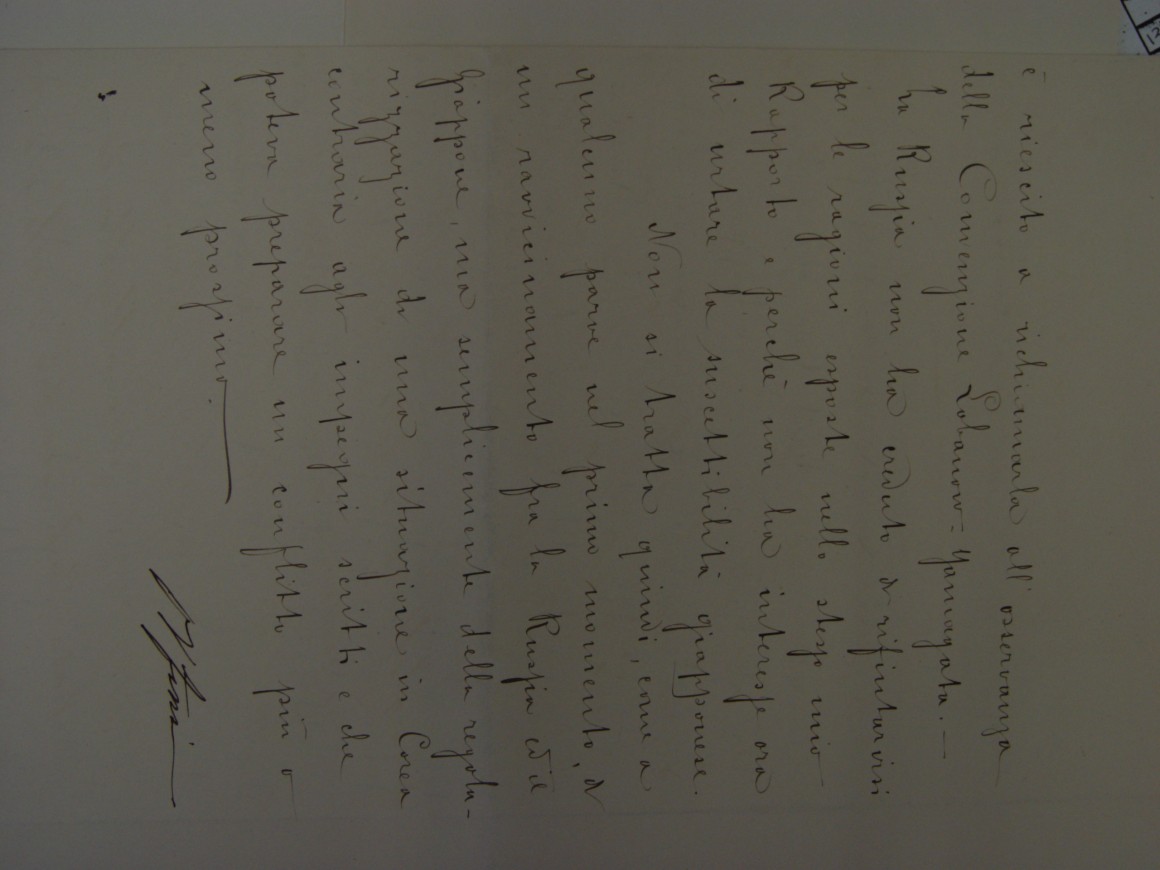 è riescito a richiamarla all'osservanza
della Convenzione Lobanow=Yamagata. —
La Russia non ha creduto di rifiutarvisi
per le ragioni esposte nello stesso mio
Rapporto e perchè non ha interesse ora
di urtare la suscettibilità giapponese.
Non si tratta quindi, come a
qualcuno parve nel primo momento, di
un ravvicinamento fra la Russia ed il
Giappone, ma semplicemente della regola-
rizzazione di una situazione in Corea
contraria agli impegni scritti e che
poteva preparare un conflitto più o
meno prossimo.